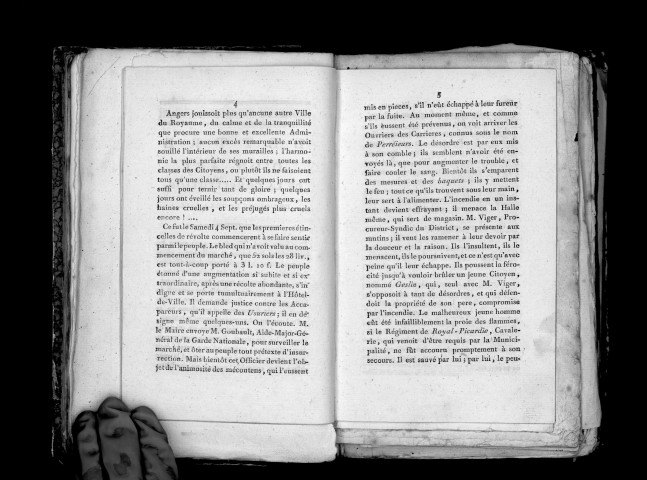 4
Angers jouissoit plus qu'aucune autre Ville
du Royaume, du calme et de la tranquilité
que procure une bonne et excellente Admi-
nistration ; aucun excès remarquable n'avoit
souillé l'intérieur de ses murailles ; l'harmo-
nie la plus parfaite régnoit entre toutes les
classes des Citoyens, ou plutôt ils ne faisoient
tous qu'une classe..... Et quelques jours ont
suffi pour ternir tant de gloire ; quelques
jours ont éveillé les soupçons ombrageux, les
haines cruelles, et les préjugés plus cruels
encore ! ....
Ce fut le Samedi 4 Sept. que les premieres étin-
celles de révolte commencerent à se faire sentir
parmi le peuple. Le bled qui n'avoit valu au com-
mencement du marché, que 52 sols les 28 liv.,
est tout-à-coup porté à 3 l. 10 f. Le peuple
étonné d'une augmentation si subite et si ex-
traordinaire, après une récolte abondante, s'in-
digne et se porte tumultuairement à l'Hôtel-
de-Ville. Il demande justice contre les Acca-
pareurs, qu'il appelle des Usuriers ; il en dé-
signe même quelques-uns. On l'écoute. M.
le Maire envoye M. Goubault, Aide-Major-Gé-
néral de la Garde Nationale, pour surveiller le
marché, et ôter au peuple tout prétexte d'insur-
rection. Mais bientôt cet Officier devient l'ob-
jet de l'animosité des mécontens, qui l'eussent
5
mis en pieces, s'il n'eût échappé à leur fureur
par la fuite. Au moment même, et comme
s'ils eussent été prévenus, on voit arriver les
Ouvriers des Carrieres, connus sous le nom
de Perréieurs. Le désordre est par eux mis
à son comble ; ils semblent n'avoir été en-
voyés là, que pour augmenter le trouble, et
faire couler le sang. Bientôt ils s'emparent
des mesures et des baquets ; ils y mettent
le feu ; tout ce qu'ils trouvent sous leur main,
leur sert à l'alimenter. L'incendie en un ins-
tant devient effrayant ; il menace la Halle
même, qui sert de magasin. M. Viger, Pro-
cureur-Syndic du District, se présente aux
mutins ; il veut les ramener à leur devoir par
la douceur et la raison. Ils l'insultent, ils le
menacent, ils le poursuivent, et ce n'est qu'avec
peine qu'il leur échappe. Ils poussent la féro-
cité jusqu'à vouloir brûler un jeune Citoyen,
nommé Geslin, qui, seul avec M. Viger,
s'opposoit à tant de désordres, et qui défen-
doit la propriété de son pere, compromise
par l'incendie. Le malheureux jeune homme
eût été infailliblement la proie des flammes,
si le Régiment de Royal-Picardie, Cavale-
rie, qui venoit d'être requis par la Munici-
palité, ne fût accouru promptement à son
secours. Il est sauvé par lui ; par lui, le peu-